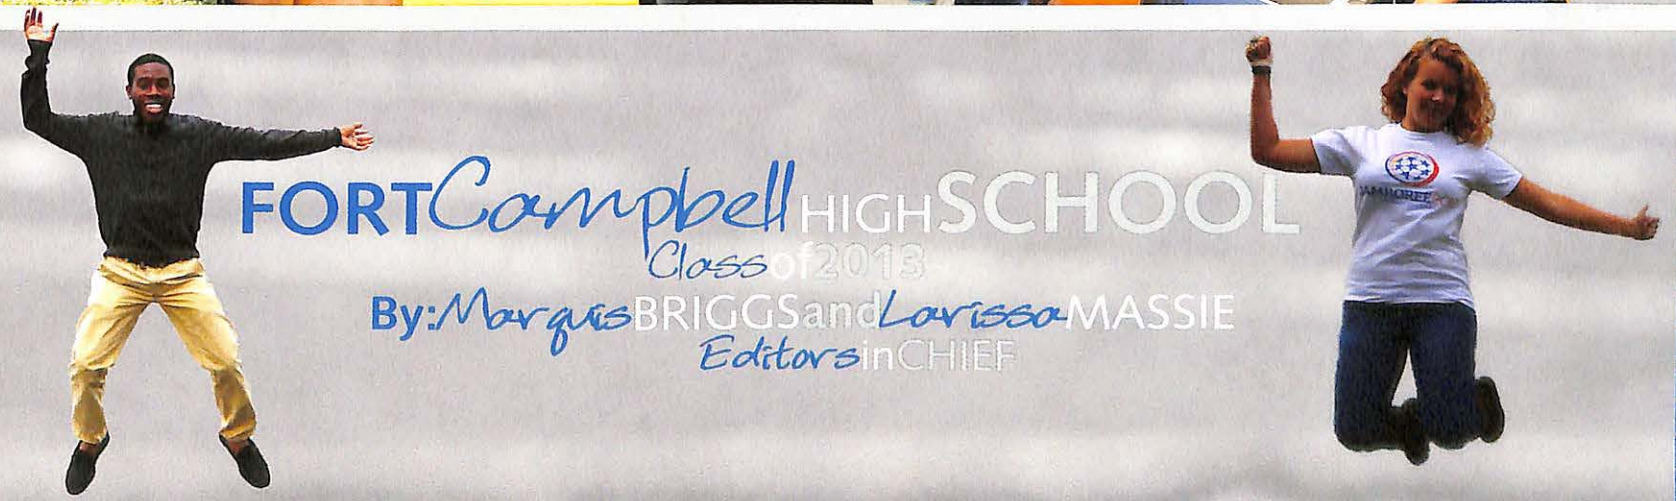 FORT Campbell HIGH SCHOOL
Class of 2013
By: Marquis BRIGGS and Larissa MASSIE
Editors in CHIEF
JAMBOREE